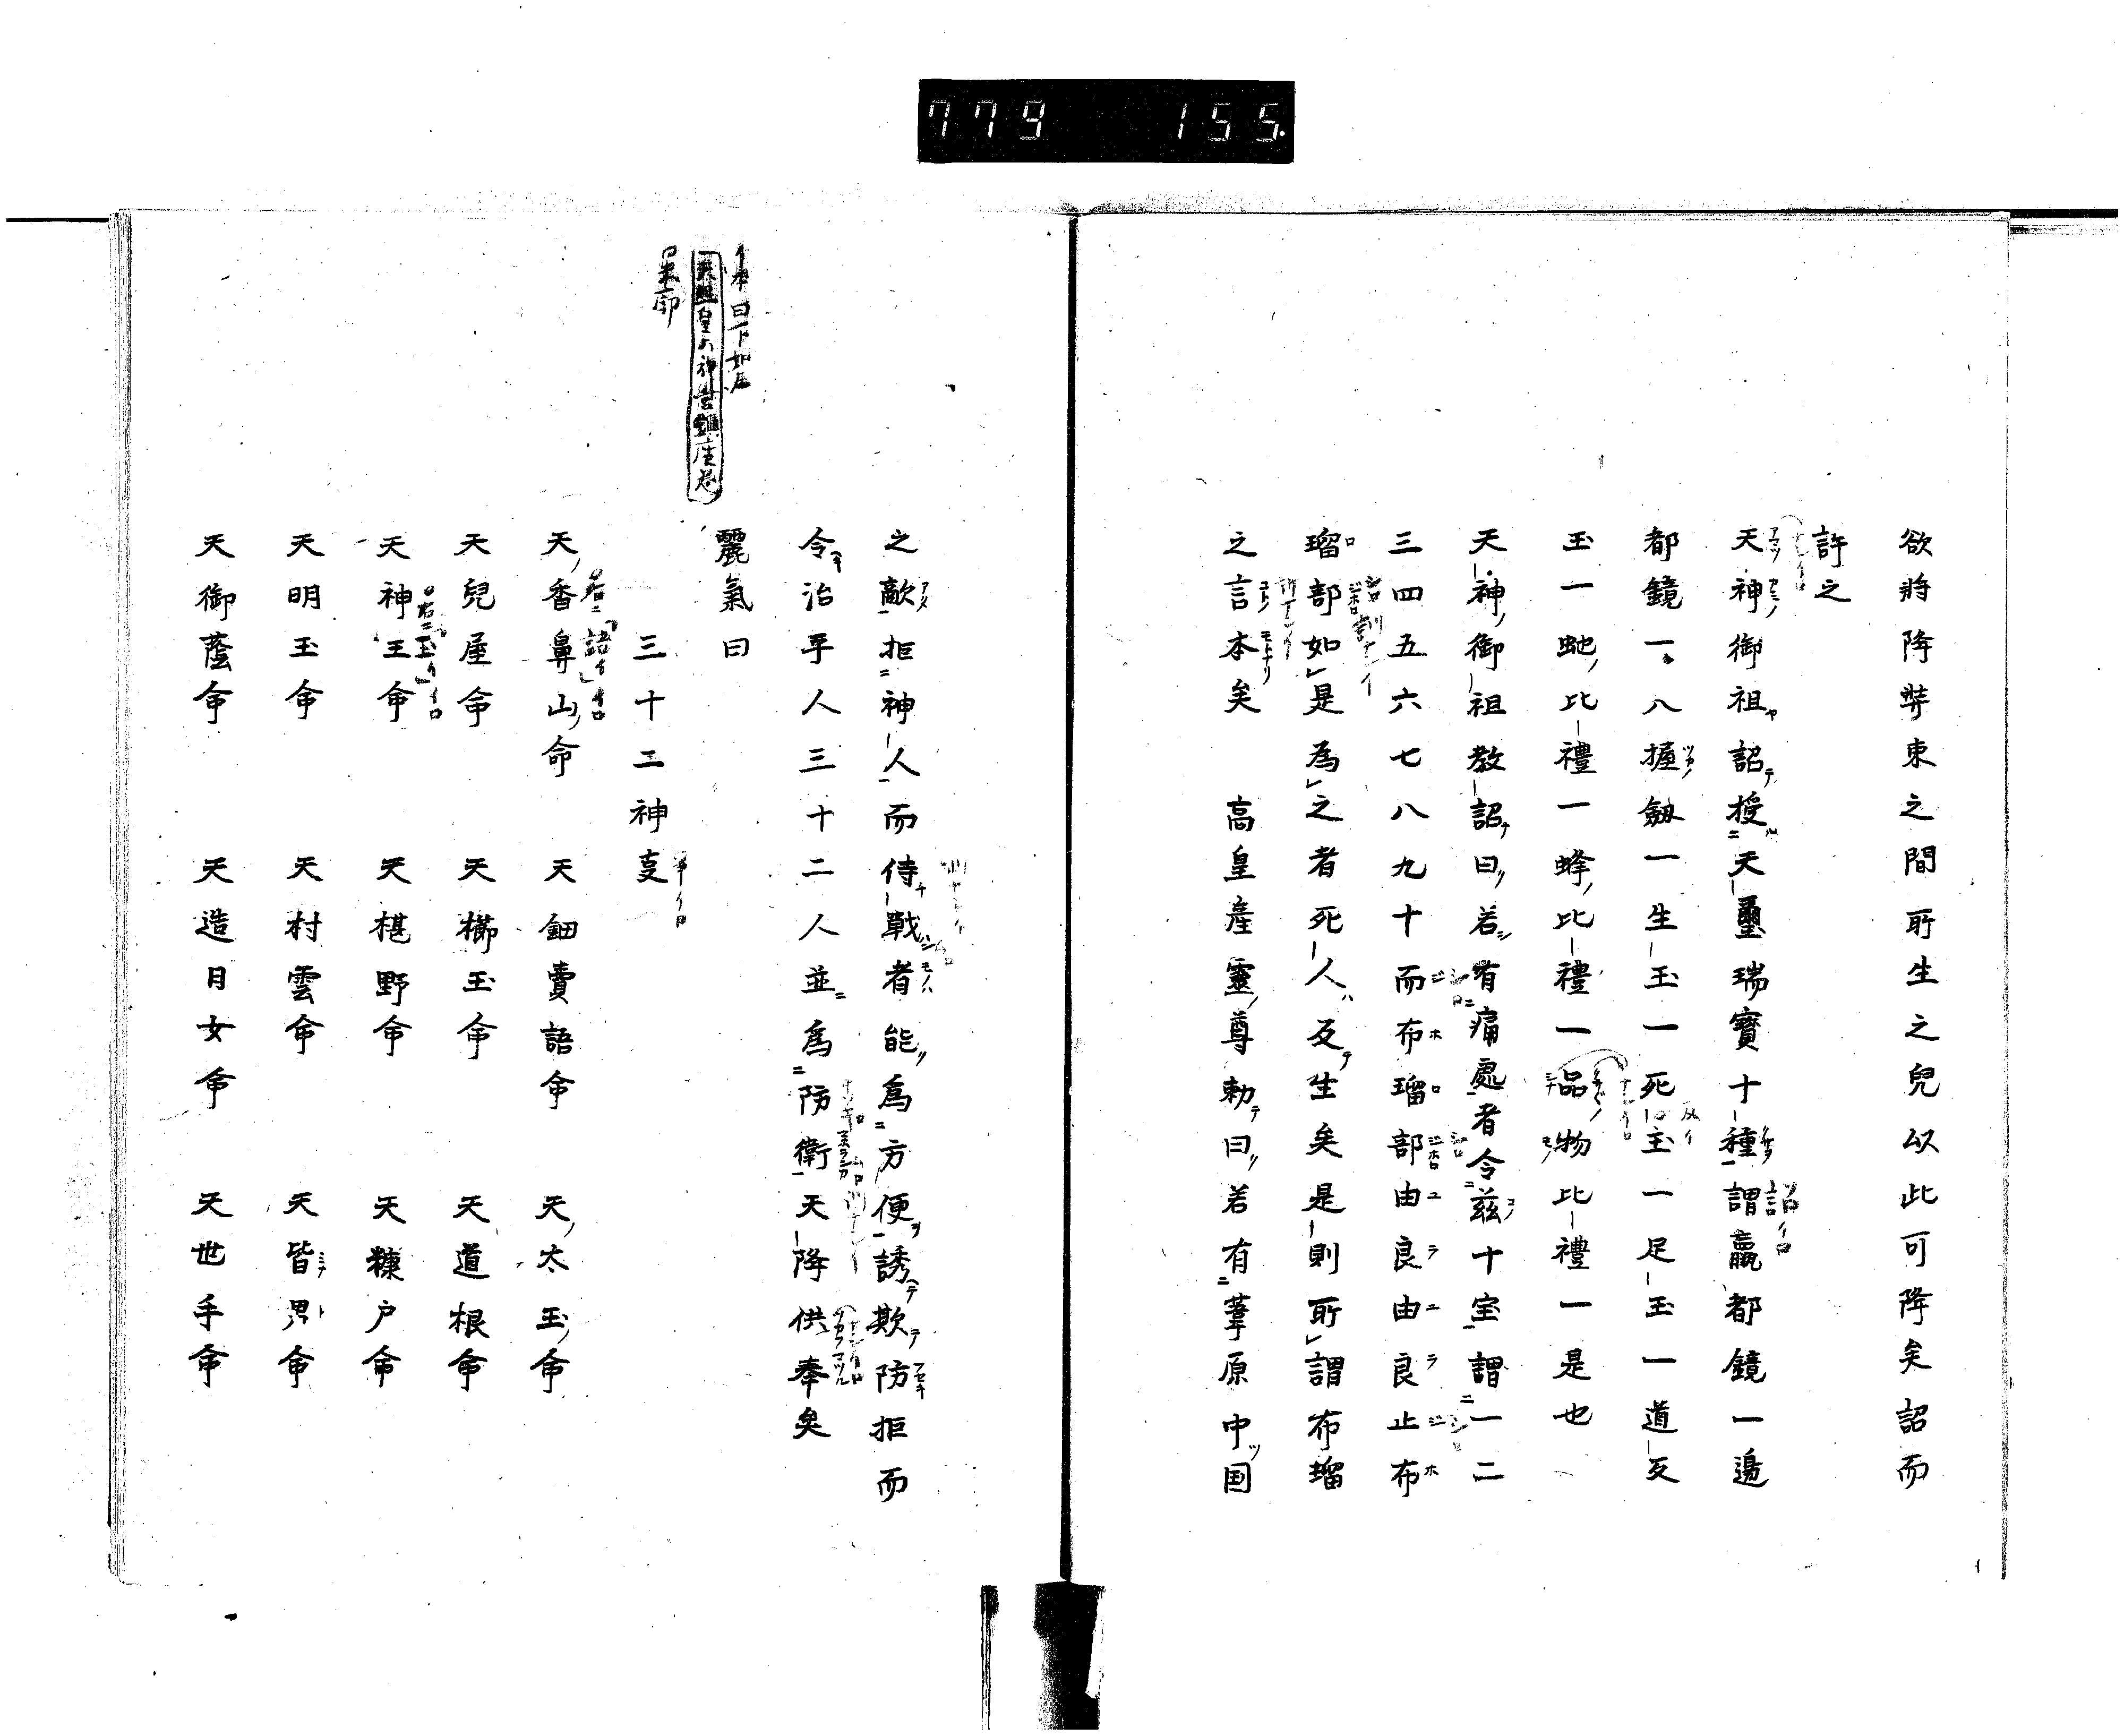 779 155.
欲將降弉束之間所生之兒以此可降矣詔而
許之
天神御祖詔授天璽瑞寶十種謂羸都鏡一邊
都鏡一八握劔一生玉一死玉一足玉一道反
玉一虵比禮一蜂比禮一品物比禮一是也
天神御祖敎詔曰若有痛處者令茲十宝謂一二
三四五六七八九十而布瑠部由良由良止布
瑠部如是為之者死人反生矣是則所謂布瑠
之言本矣 高皇産靈尊勅曰若有葦原中国
之敵拒神人而侍戰者能爲方便誘欺防拒而
令治平人三十二人並爲防衛天降供奉矣
イ本曰下如左
天照皇大神宮鎮座卷
麗氣曰
三十二神支
天香鼻山命 天鈿賣語命 天太玉命
天兒屋命 天櫛玉命 天道根命
天神王命 天椹野命 天糠戸命
天明玉命 天村雲命 天皆男命
天御蔭命 天造月女命 天世手命